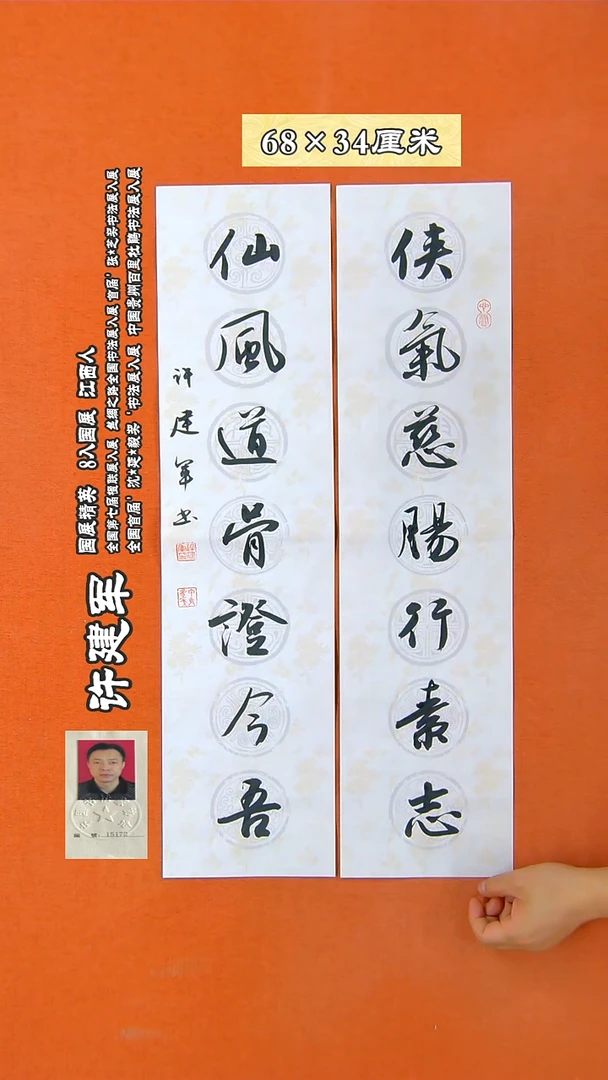 68×34厘米
侠氣慈腸行素志
仙風道骨證今吾
许建军书
许建军
国展精英 8入国展 江西人
全国第七届楹联展入展 丝绸之路全国书法展入展 首届'张★芝奖书法展入展
全国首届'沈★延★毅奖'书法展入展 中国贵州百里杜鹃书法展入展
15172